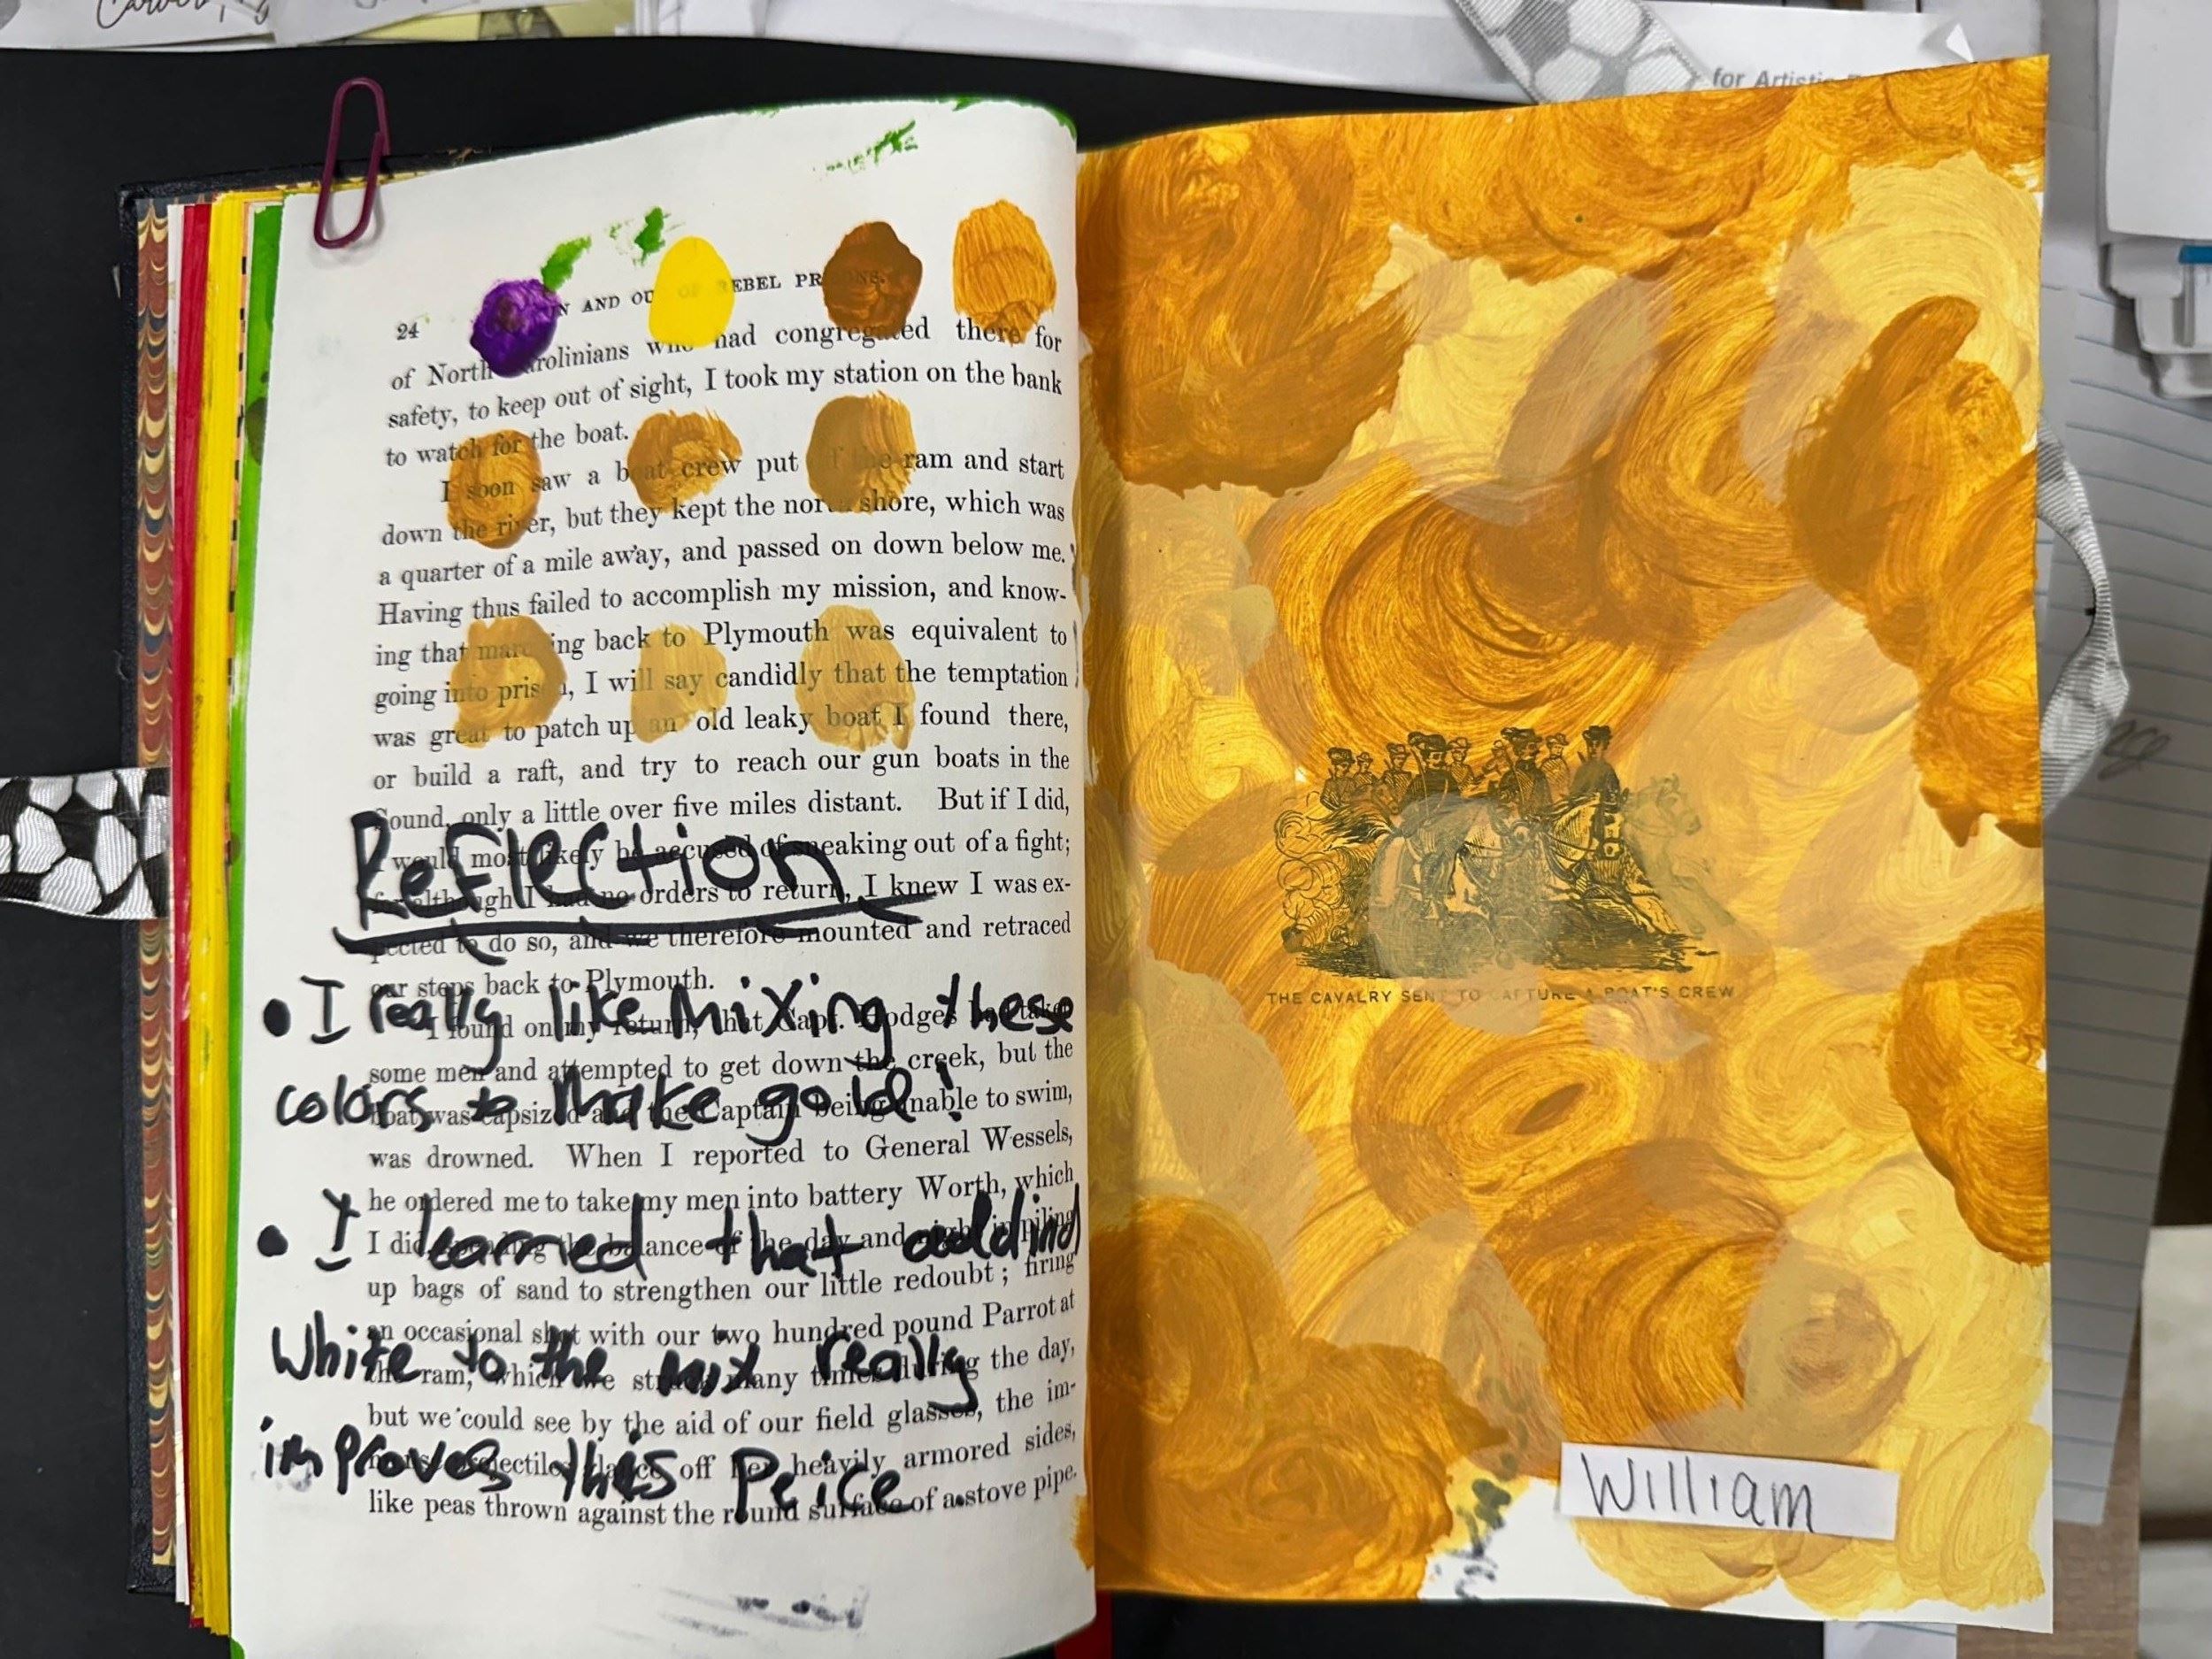 for Artistic
24
AND OU EBEL PR
of North rolinians who had congregated there for
safety, to keep out of sight, I took my station on the bank
to watch for the boat.
I soon saw a boat crew put off the ram and start
down the river, but they kept the north shore, which was
a quarter of a mile away, and passed on down below me.
Having thus failed to accomplish my mission, and know-
ing that marching back to Plymouth was equivalent to
going into prison, I will say candidly that the temptation
was great to patch up an old leaky boat I found there,
or build a raft, and try to reach our gun boats in the
Sound, only a little over five miles distant. But if I did,
Reflection
I would most likely be accused of sneaking out of a fight;
although I had no orders to return, I knew I was ex-
pected to do so, and we therefore mounted and retraced
our steps back to Plymouth.
• I really like mixing these
I found on my return, that Capt. Hodges
some men and attempted to get down the creek, but the
colors to make gold!
boat was capsized and the Captain being unable to swim,
was drowned. When I reported to General Wessels,
he ordered me to take my men into battery Worth, which
• I learned that addind
I did, the balance of the day and night in piling
up bags of sand to strengthen our little redoubt; firing
an occasional shot with our two hundred pound Parrot at
white to the mix really
the ram, which we struck many times during the day,
but we could see by the aid of our field glasses, the im-
improves this Peice
off her heavily armored sides,
like peas thrown against the round surface of a stove pipe.
THE CAVALRY SENT TO CAPTURE A BOAT'S CREW
William